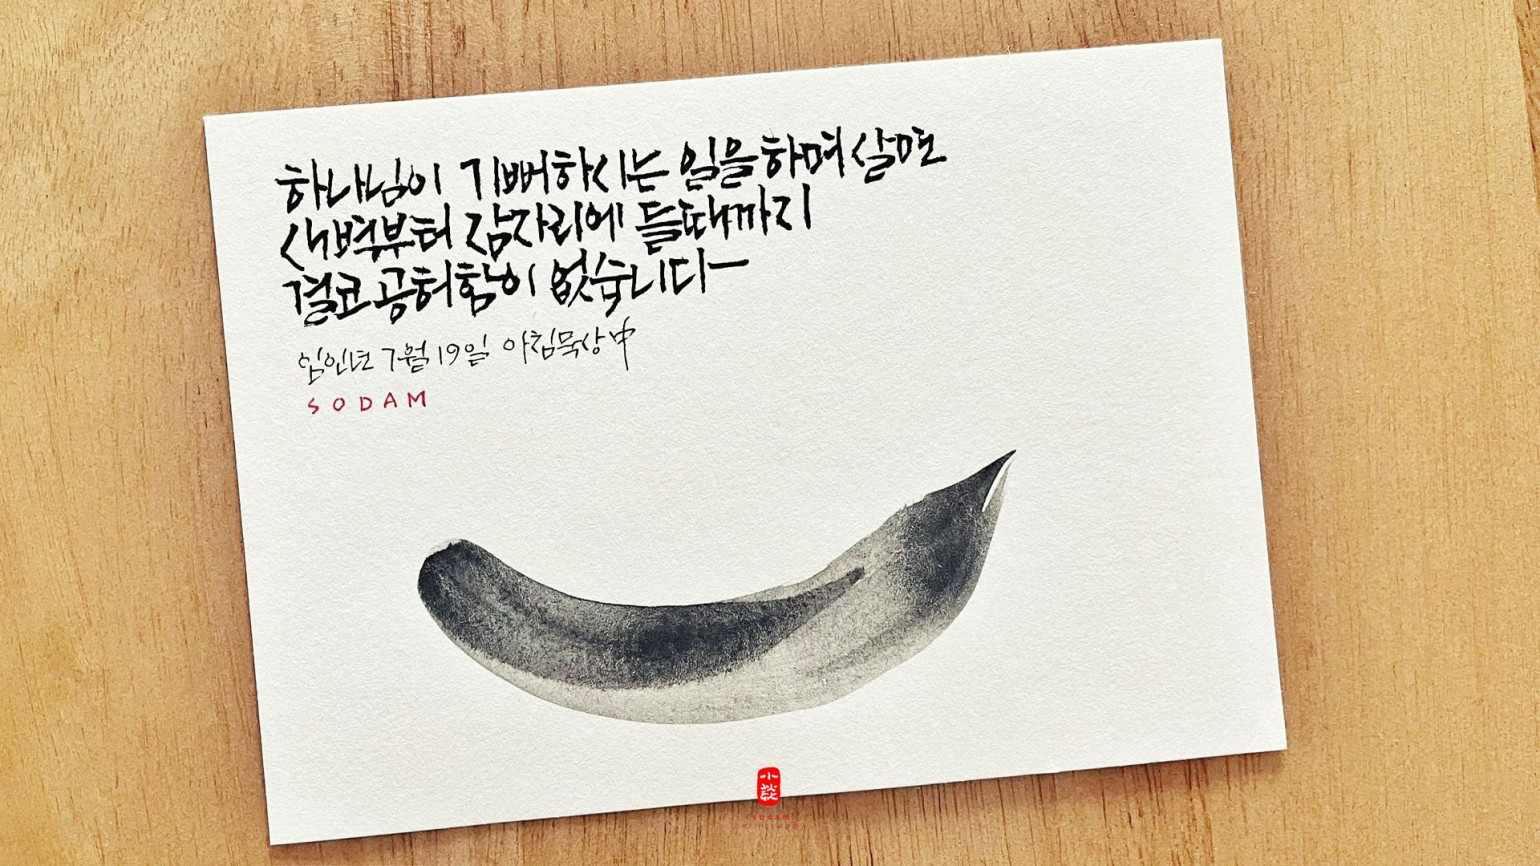 하나님이 기뻐하시는 일을 하며 살면
새벽부터 잠자리에 들때까지
결코 공허함이 없습니다
임인년 7월 19일 아침묵상中
SODAM
sodam